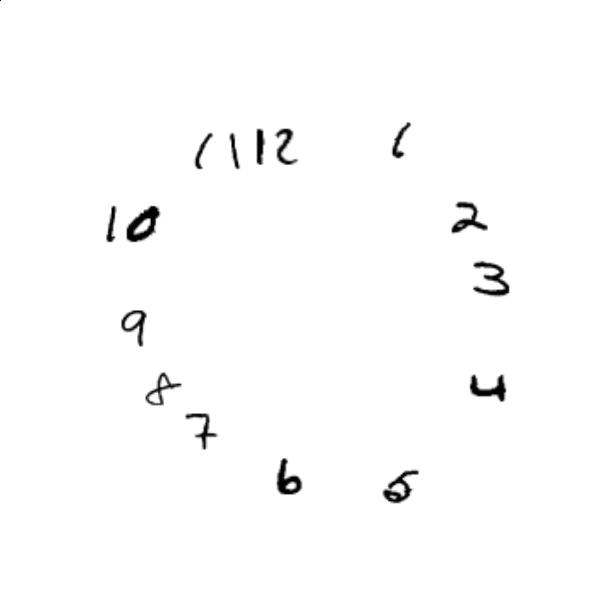 11 12 1
10 2
3
9
8 4
7
6 5